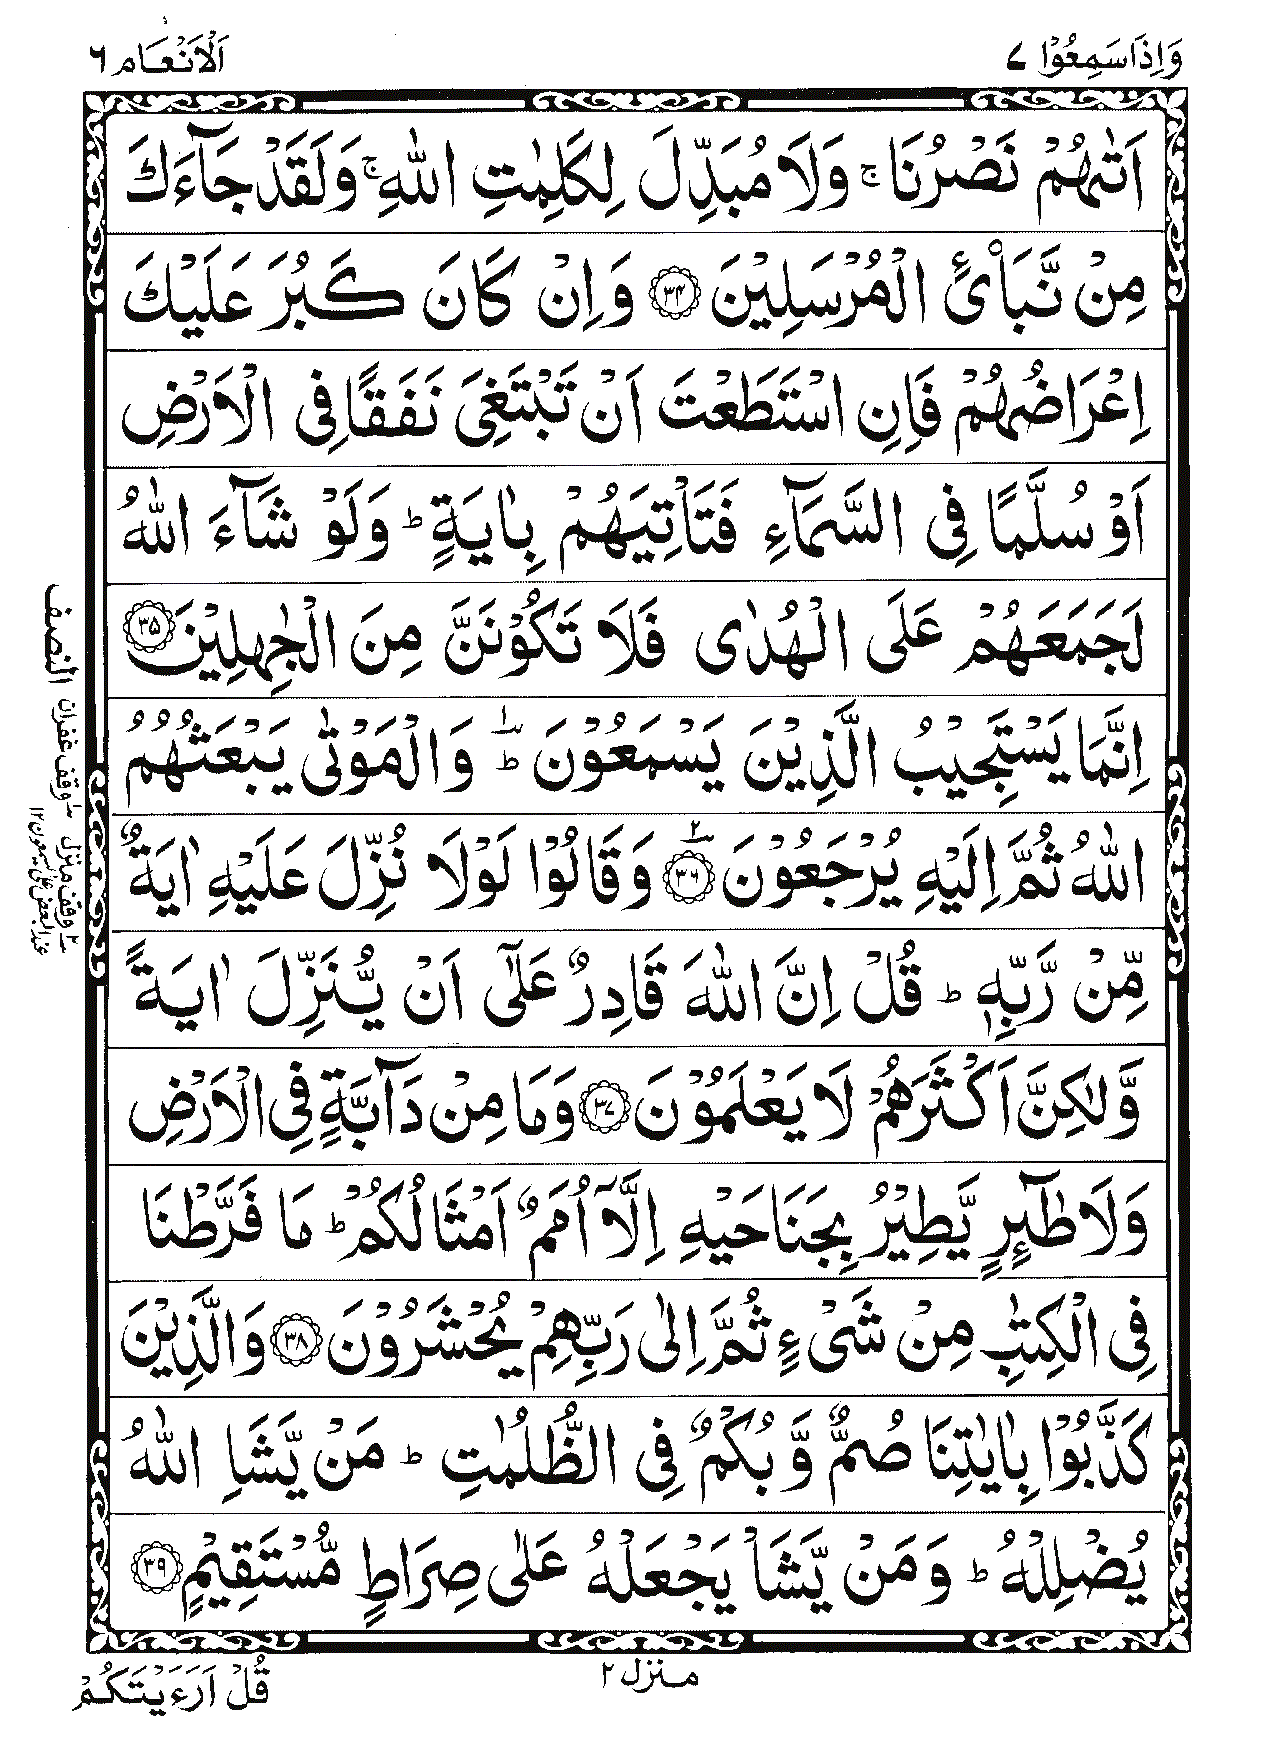 وَاِذَاسَمِعُوْا ٧
اَلْاَنْعَام ٦
اَتٰىهُمْ نَصْرُنَا ۚ وَلَا مُبَدِّلَ لِكَلِمٰتِ اللّٰهِ ۚ وَلَقَدْ جَآءَكَ
مِنْ نَّبَاِۡئ الْمُرْسَلِيْنَ ﴿٣٤﴾ وَاِنْ كَانَ كَبُرَ عَلَيْكَ
اِعْرَاضُهُمْ فَاِنِ اسْتَطَعْتَ اَنْ تَبْتَغِىَ نَفَقًا فِى الْاَرْضِ
اَوْ سُلَّمًا فِى السَّمَآءِ فَتَاْتِيَهُمْ بِاٰيَةٍ ؕ وَلَوْ شَآءَ اللّٰهُ
لَجَمَعَهُمْ عَلَى الْهُدٰى فَلَا تَكُوْنَنَّ مِنَ الْجٰهِلِيْنَ ﴿٣٥﴾
اِنَّمَا يَسْتَجِيْبُ الَّذِيْنَ يَسْمَعُوْنَ ؕ وَالْمَوْتٰى يَبْعَثُهُمُ
اللّٰهُ ثُمَّ اِلَيْهِ يُرْجَعُوْنَ ﴿٣٦﴾ وَقَالُوْا لَوْلَا نُزِّلَ عَلَيْهِ اٰيَةٌ
مِّنْ رَّبِّهٖ ؕ قُلْ اِنَّ اللّٰهَ قَادِرٌ عَلٰٓى اَنْ يُّنَزِّلَ اٰيَةً
وَّلٰكِنَّ اَكْثَرَهُمْ لَا يَعْلَمُوْنَ ﴿٣٧﴾ وَمَا مِنْ دَآبَّةٍ فِى الْاَرْضِ
وَلَا طٰٓئِرٍ يَّطِيْرُ بِجَنَاحَيْهِ اِلَّاۤ اُمَمٌ اَمْثَالُكُمْ ؕ مَا فَرَّطْنَا
فِى الْكِتٰبِ مِنْ شَىْءٍ ثُمَّ اِلٰى رَبِّهِمْ يُحْشَرُوْنَ ﴿٣٨﴾ وَالَّذِيْنَ
كَذَّبُوْا بِاٰيٰتِنَا صُمٌّ وَّبُكْمٌ فِى الظُّلُمٰتِ ؕ مَنْ يَّشَاِ اللّٰهُ
يُضْلِلْهُ ؕ وَمَنْ يَّشَاْ يَجْعَلْهُ عَلٰى صِرَاطٍ مُّسْتَقِيْمٍ ﴿٣٩﴾
النصف
١ وقف غفران
٢ وقف منزل
عند البعض على يسمعون ١٢
منزل ٢
قُلْ اَرَءَيْتَكُمْ